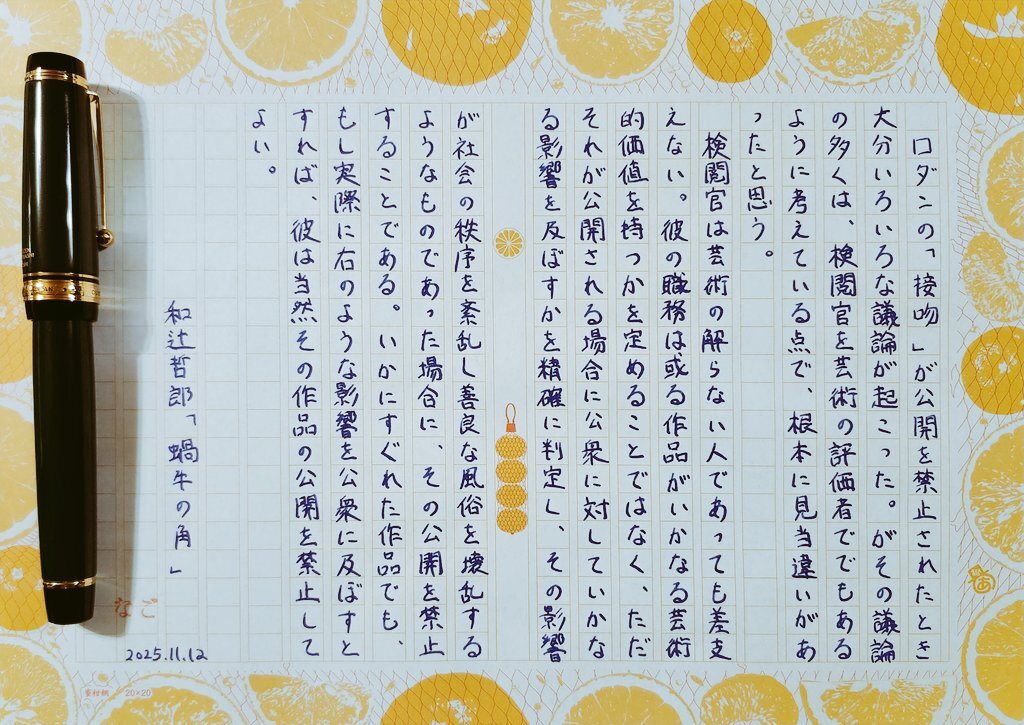 ロダンの「接吻」が公開を禁止されたとき
大分いろいろな議論が起こった。がその議論
の多くは、検閲官を芸術の評価者ででもある
ように考えている点で、根本に見当違いがあ
ったと思う。
検閲官は芸術の解らない人であっても差支
えない。彼の職務は或る作品がいかなる芸術
的価値を持つかを定めることではなく、ただ
それが公開される場合に公衆に対していかな
る影響を及ぼすかを精確に判定し、その影響
が社会の秩序を紊乱し善良な風俗を壊乱する
ようなものであった場合に、その公開を禁止
することである。いかにすぐれた作品でも、
もし実際に右のような影響を公衆に及ぼすと
すれば、彼は当然その作品の公開を禁止して
よい。
和辻哲郎「蝸牛の角」
なご
2025.11.12
蜜柑網 20×20